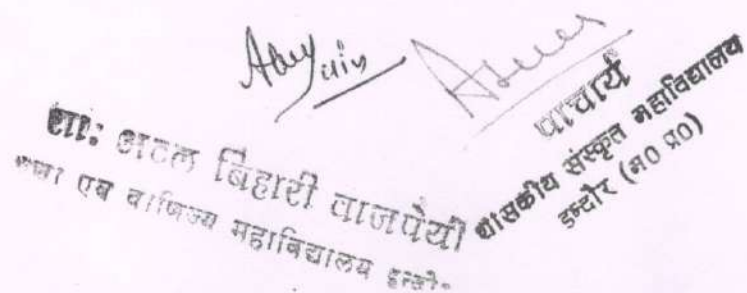 शा: अटल बिहारी वाजपेयी
कला एवं वाणिज्य महाविद्यालय इन्दौर
प्राचार्य
शासकीय संस्कृत महाविद्यालय
इन्दौर (म0 प्र0)